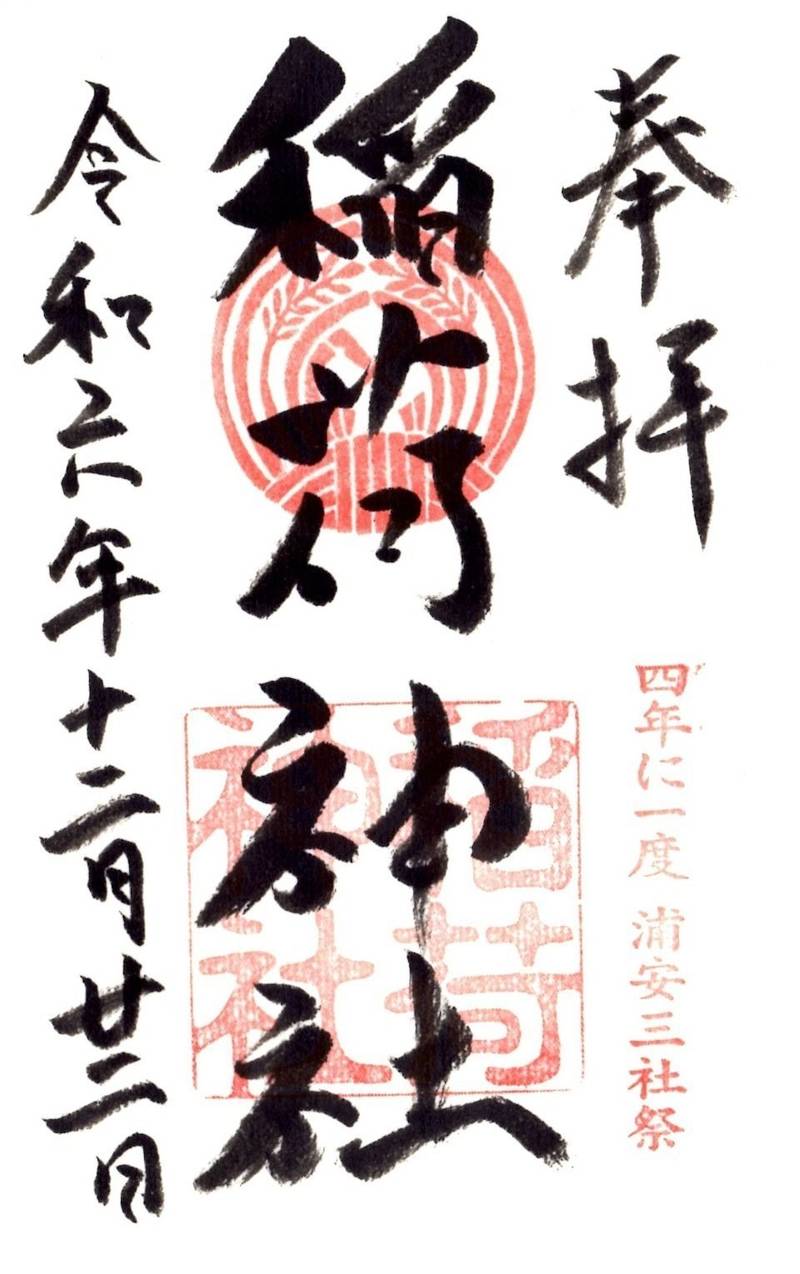 奉拝
四年に一度 浦安三社祭
稲荷神社
稲荷神社
令和六年十二月廿二日